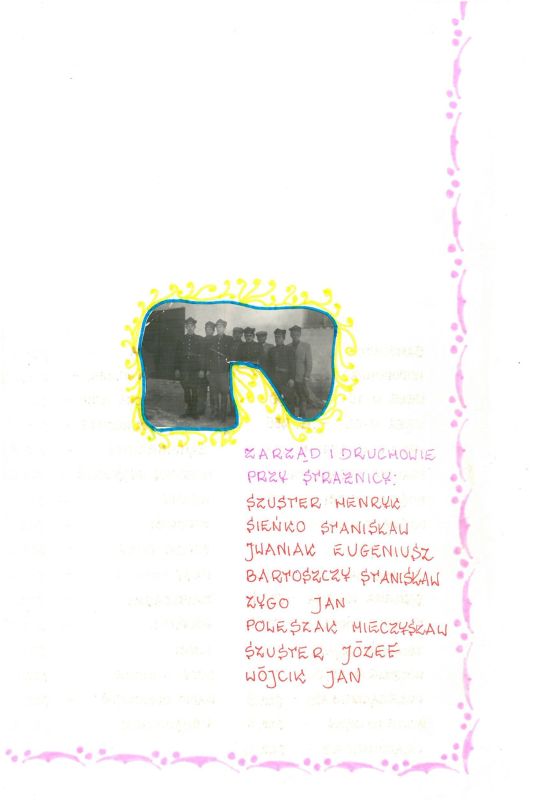 ZARZĄD I DRUCHOWIE
PRZY STRAŻNICY:
SZUSTER HENRYK
SIEŃKO STANISŁAW
IWANIAK EUGENIUSZ
BARTOSZCZY STANISŁAW
ZYGO JAN
POLESZAK MIECZYSŁAW
SZUSTER JÓZEF
WÓJCIK JAN